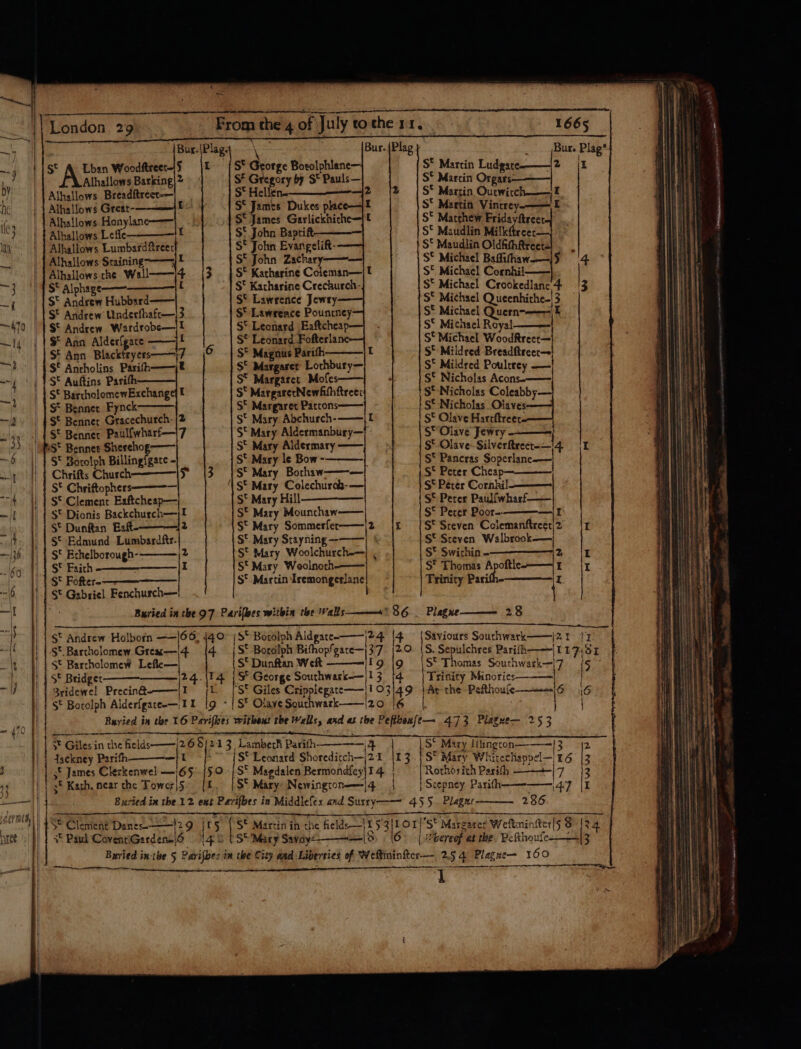 London 29 From the 4 of July to the 11. 1665
Bur. Plag.
St Alban Woodſtreet 5 1
Alhallows Barking 2
Alhallows Breadſtreet
Alhallows Great 1
Alhallows Honylane
Alhallows Leſſe 1
Alhallows Lumbardſtreet
Alhallows Staining 1
Alhallows the Wall 4 3
St Alphage 1
St Andrew Hubbard
St Andrew Underſhaft 3
St Andrew Wardrobe 1
St Ann Alderſgate 1
St Ann Blackfryers 7 6
St Antholins Pariſh 1
St Auſtins Pariſh
St Bartholomew Exchange 1
St Bennet Fynck
St Bennet Gracechurch 2
St Bennet Paulſwharf 7
St Bennet Sherehog
St Botolph Billingſgate
Chriſts Church 5 3
St Chriſtophers
St Clement Eaſtcheap
St Dionis Backchurch 1
St Dunſtan Eaſt 2
St Edmund Lumbardſtr.
St Ethelborough 2
St Faith 1
St Foſter
St Gabriel Fenchurch
Bur. Plag
St George Botolphlane
St Gregory by St Pauls
St Hellen 2 2
St James Dukes place 1
St James Garlickhithe 1
St John Baptiſt
St John Evangeliſt
St John Zachary
St Katharine Coleman 1
St Katharine Creechurch
St Lawrence Jewry
St Lawrence Pountney
St Leonard Eaſtcheap
St Leonard Foſterlane
St Magnus Pariſh 1
St Margaret Lothbury
St Margaret Moſes
St Margaret Newfiſhſtreet
St Margaret Pattons
St Mary Abchurch 1
St Mary Aldermanbury
St Mary Aldermary
St Mary le Bow
St Mary Bothaw
St Mary Colechurch
St Mary Hill
St Mary Mounthaw
St Mary Sommerſet 2 1
St Mary Stayning
St Mary Woolchurch
St Mary Woolnoth
St Martin Iremongerlane
Bur. Plag.
St Martin Ludgate 2 1
St Martin Orgars
St Martin Outwitch 1
St Martin Vintrey 1
St Matthew Fridayſtreet
St Maudlin Milkſtreet
St Maudlin Oldfiſhſtreet
St Michael Baſſiſhaw 5 4
St Michael Cornhil
St Michael Crookedlane 4 3
St Michael Queenhithe 3
St Michael Quern 1
St Michael Royal
St Michael Woodſtreet
St Mildred Breadſtreet
St Mildred Poultrey
St Nicholas Acons
St Nicholas Coleabby
St Nicholas Olaves
St Olave Hartſtreet
St Olave Jewry
St Olave Silverſtreet 4 1
St Pancras Soperlane
St Peter Cheap
St Peter Cornhil
St Peter Paulſwharf
St Peter Poor 1
St Steven Colemanſtreet 2 1
St Steven Walbrook
St Swithin 2 1
St Thomas Apoſtle 1 1
Trinity Pariſh 1
Buried in the 97 Pariſhes within the Walls 86 Plague 28
St Andrew Holborn 66 40
St Bartholomew Great 4 4
St Bartholomew Leſſe
St Bridget 24 14
Bridewel Precinct 1 1
St Botolph Alderſgate 11 9
St Botolph Aldgate 24 4
St Botolph Biſhopſgate 37 20
St Dunſtan Weſt 19 9
St George Southwark 13 4
St Giles Cripplegate 103 49
St Olave Southwark 20 6
Saviours Southwark 21 1
S. Sepulchres Pariſh 117 81
St Thomas Southwark 7 5
Trinity Minories
At the Peſthouſe 6 6
Buried in the 16 Pariſhes without the Walls, and at the Peſthouſe 473 Plague 253
St Giles in the fields 268 213
Hackney Pariſh 1
St James Clerkenwel 65 50
St Kath. near the Tower 5 1
Lambeth Pariſh 4
St Leonard Shoreditch 21 13
St Magdalen Bermondſey 14
St Mary Newington 4
St Mary Iſlington 3 2
St Mary Whitechappel 16 3
Rothorith Pariſh 7 3
Stepney Pariſh 47 1
Buried in the 12 out Pariſhes in Middleſex and Surry 455 Plague 286
St Clement Danes 29 15
St Paul Covent Garden 6 4
St Martin in the fields 153 101
St Mary Savoy 8 6
St Margaret Weſtminſter 58 34
Whereof at the Peſthouſe 3
Buried in the 5 Pariſhes in the City and Liberties of Weſtminſter 254 Plague 160
1